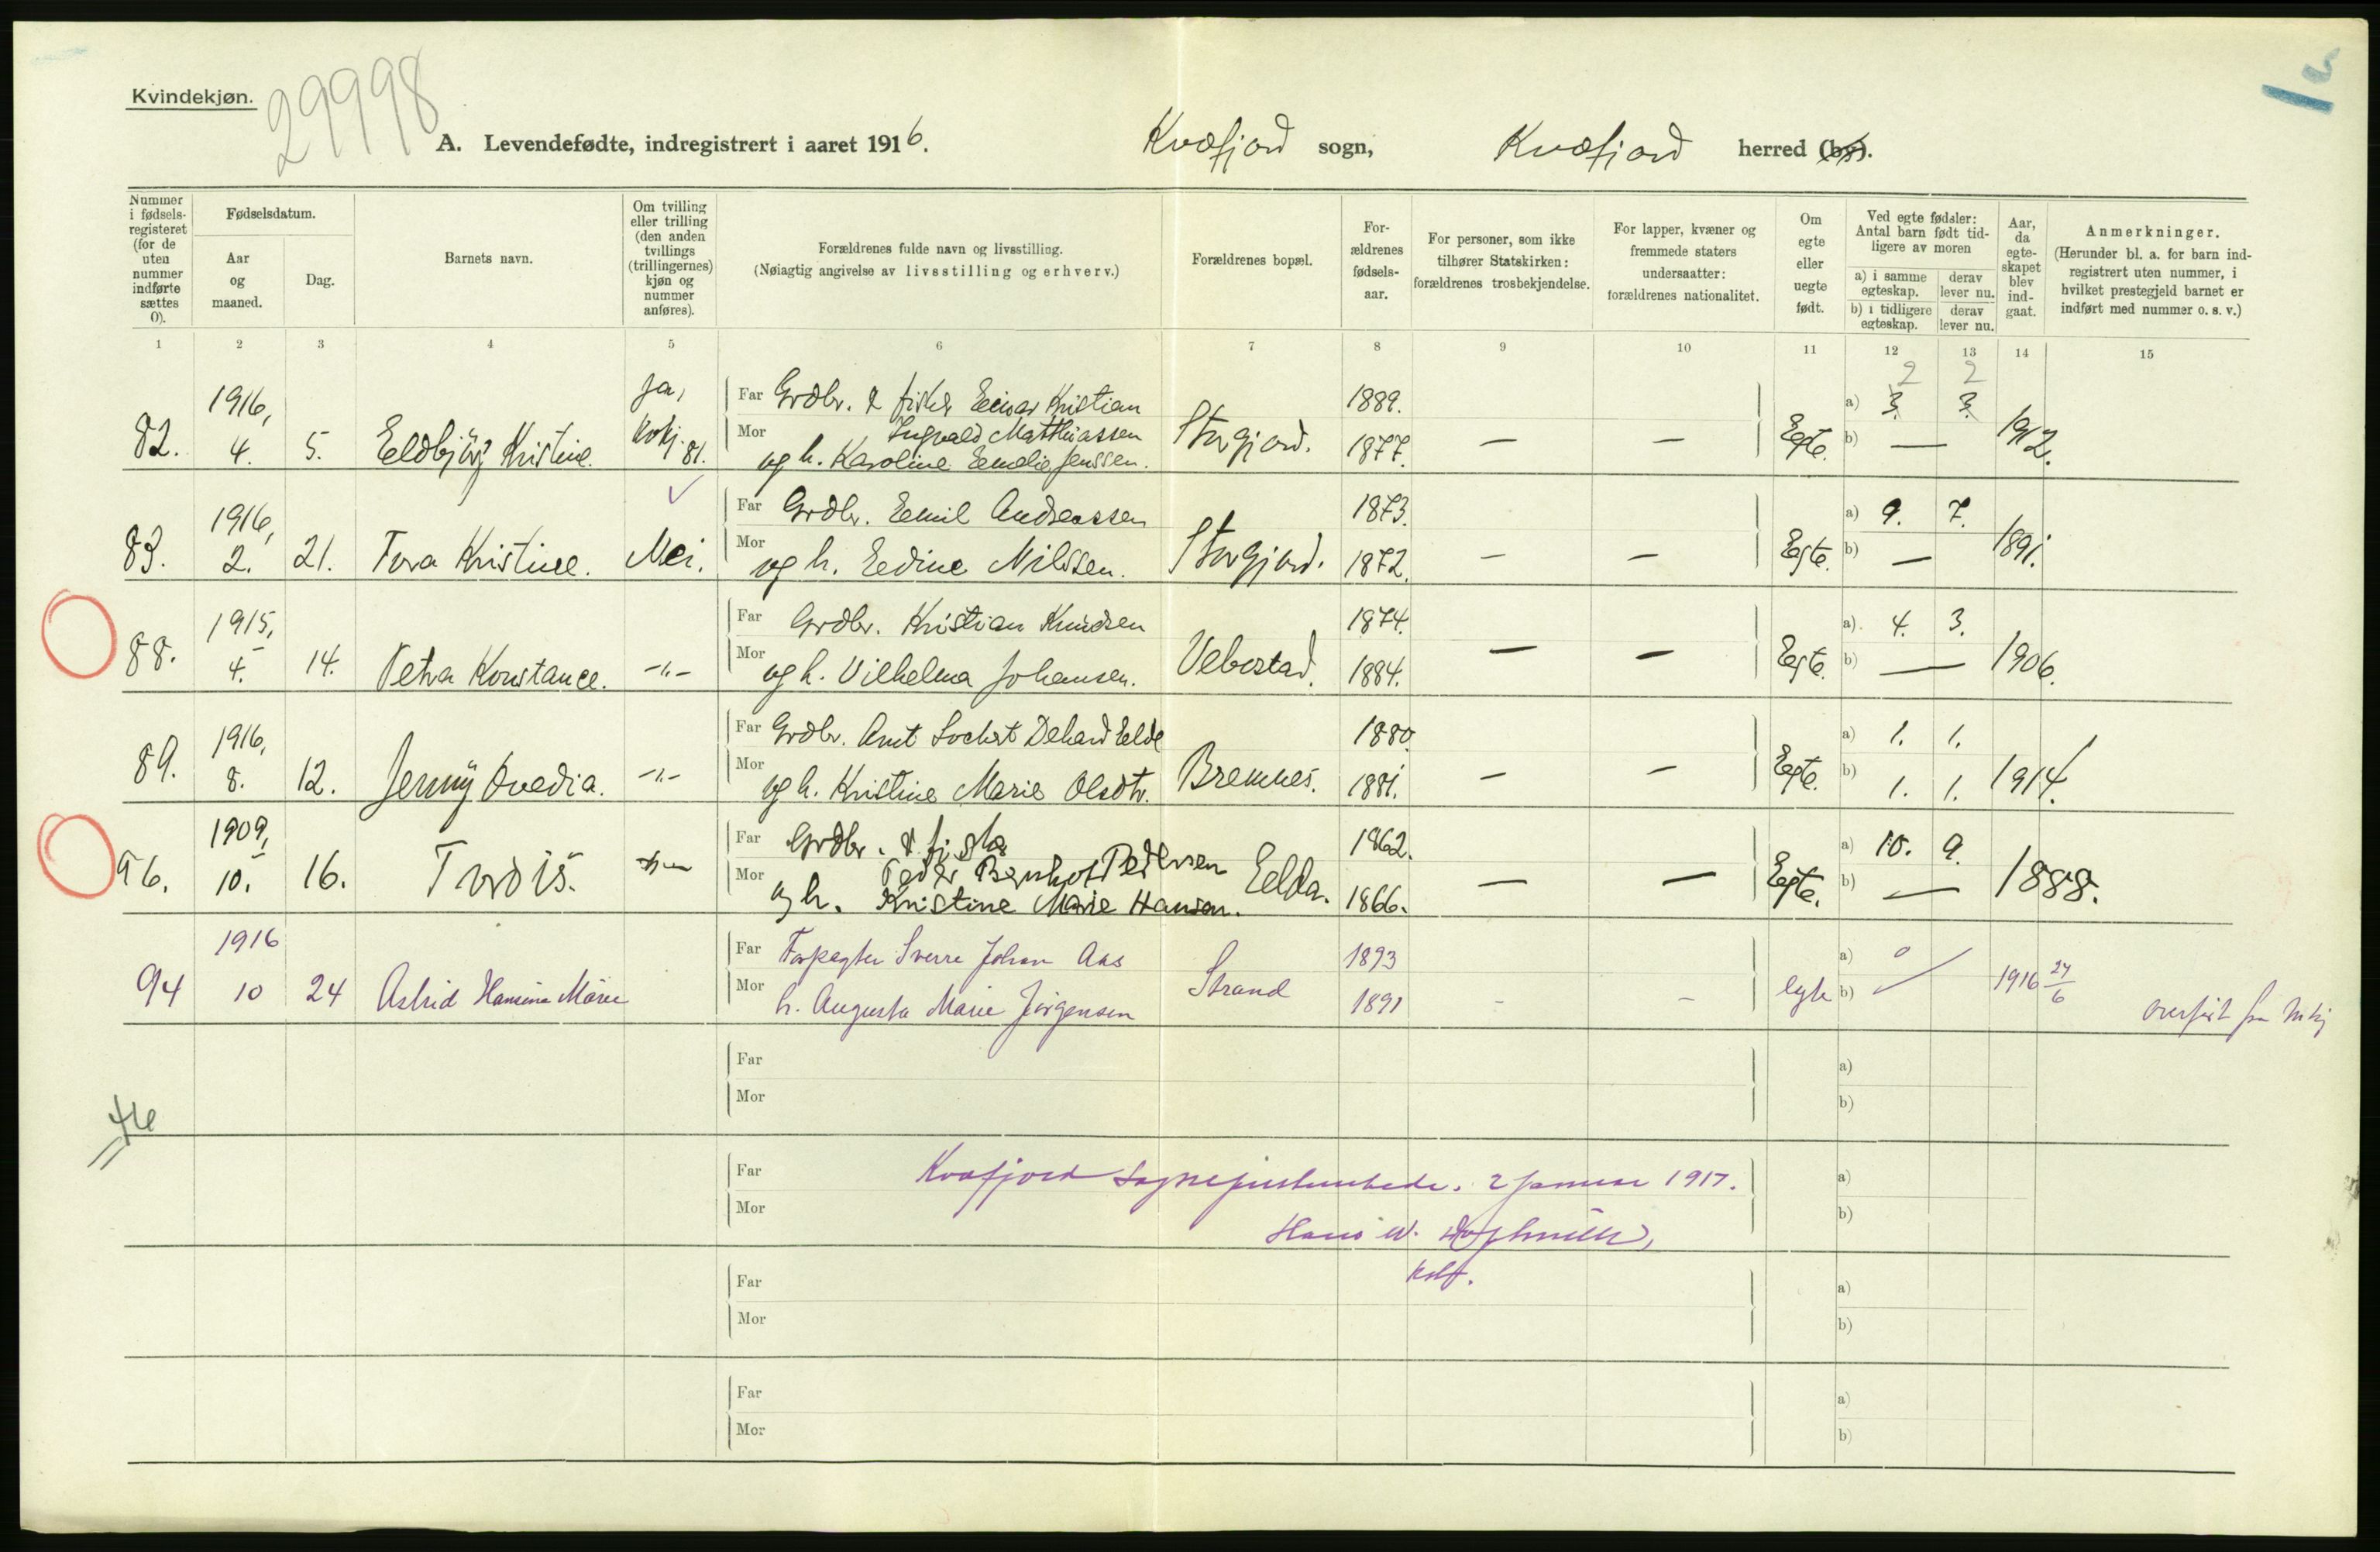 Kvindekjøn.
29998
A. Levendefødte, indregistrert i aaret 1916. Kvæfjord sogn, Kvæfjord herred (by).
Nummer i fødselsregisteret (for de uten nummer indførte sættes 0).
Fødselsdatum.
Aar og maaned.
Dag.
Barnets navn.
Om tvilling eller trilling (den anden tvillings (trillingernes) kjøn og nummer anføres).
Forældrenes fulde navn og livsstilling.
(Nøiagtig angivelse av livsstilling og erhverv.)
Forældrenes bopæl.
Forældrenes fødselsaar.
For personer, som ikke tilhører Statskirken: forældrenes trosbekjendelse.
For lapper, kvæner og fremmede staters undersaatter: forældrenes nationalitet.
Om egte eller uegte født.
Ved egte fødsler: Antal barn født tidligere av moren
a) i samme egteskap. derav lever nu.
b) i tidligere egteskap. derav lever nu.
Aar, da egteskapet blev indgaat.
Anmerkninger.
(Herunder bl. a. for barn indregistrert uten nummer, i hvilket prestegjeld barnet er indført med nummer o. s. v.)
1 2 3 4 5 6 7 8 9 10 11 12 13 14 15
2 2
1916, ja, Far Grdbr. & fisker Einar Kristian 1889. a) 3. 3.
82. 4. 5. Eldbjörg Kristine. Kvkj. 81. Mor Ingvald Matthiassen Storjord. 1877. — — Egte. b) — 1912.
og h. Karoline Emelie Jenssen.
1916, Far Grdbr. Emil Andreassen 1873. a) 9. 7.
83. 2. 21. Tora Kristine. Nei. Mor og h. Edine Nilssen. Storjord. 1872. — — Egte. b) — 1891.
1915, Far Grdbr. Kristian Knudsen 1874. a) 4. 3.
88. 4. 14. Petra Konstance. -"- Mor og h. Vilhelma Johansen. Vebostad. 1884. — — Egte. b) — 1906.
1916, Far Grdbr. Arnt Lockert Dehard Elde 1880. a) 1. 1.
89. 8. 12. Jenny Ovedia. -"- Mor og h. Kristine Marie Olsdtr. Bremnes. 1881. — — Egte. b) 1. 1. 1914.
1909, Far Grdbr. & fisker 1862. a) 10. 9.
96. 10. 16. Tordis. -"- Mor Peder Bernhof Pedersen Eelda. — — Egte. b) — 1888.
og h. Kristine Marie Hansen. 1866.
1916 Far Forpagter Sverre Johan Aas 1893 a) 0
94 10 24 Astrid Hansine Marie Mor h. Augusta Marie Jørgensen Strand 1891 - - Egte b) 1916 24/6 overført fra Mkj
Far a)
Mor b)
46
Far Kvæfjord sogneprestembede. 2 januar 1917. a)
Mor b)
Hans W.
Far a)
Mor b)
Far a)
Mor b)